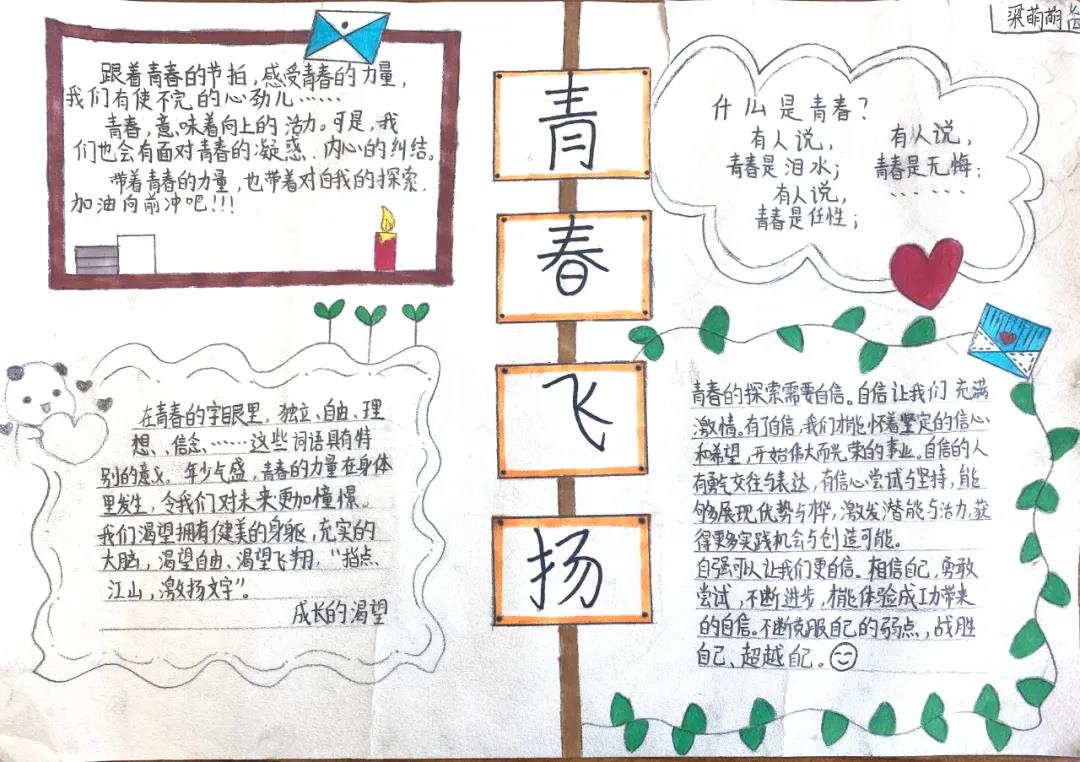 梁萌萌
青
春
飞
扬
跟着青春的节拍，感受青春的力量，
我们有使不完的心劲儿……
青春，意味着向上的活力。可是，我
们也会有面对青春的疑惑、内心的纠结。
带着青春的力量，也带着对自我的探索，
加油向前冲吧!!!
什么是青春？
有人说，
青春是泪水；
有人说，
青春是任性；
有人说，
青春是无悔；
......
在青春的字眼里，独立、自由、理
想、信念、……这些词语具有特
别的意义。年少气盛，青春的力量在身体
里发生，令我们对未来更加憧憬。
我们渴望拥有健美的身躯，充实的
大脑，渴望自由、渴望飞翔，“指点
江山，激扬文字”。
成长的渴望
青春的探索需要自信。自信让我们充满
激情。有了自信，我们才能怀着坚定的信心
和希望，开始伟大而光荣的事业。自信的人
有勇气交往与表达，有信心尝试与坚持，能
够展现优势与才华，激发潜能与活力，获
得更多实践机会与创造可能。
自强可以让我们更自信。相信自己，勇敢
尝试，不断进步，才能体验成功带来
的自信。不断克服自己的弱点，战胜
自己、超越自己。